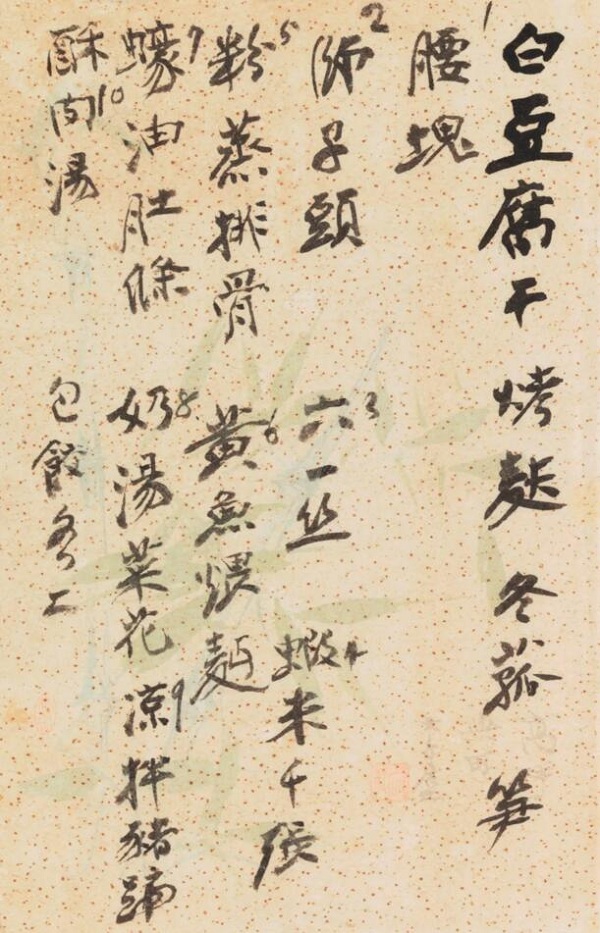 白豆腐干 烤麩 冬菰 笋
1腰塊
2師子頭 3六一丝 4蝦米千張
5粉蒸排骨 6黄魚煨麵
7蠔油肚條 8奶湯菜花 9凉拌豬蹄
10酥肉湯 包餃